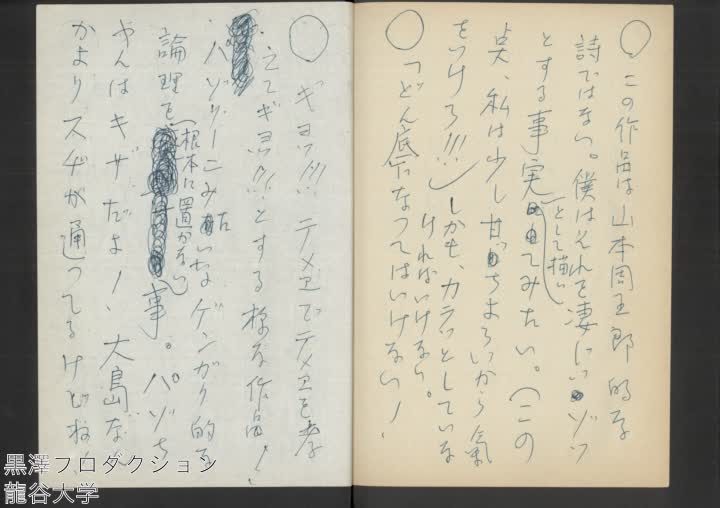 ○この作品は山本周五郎的な
詩ではない。僕はそれを凄にいゾッ
とする事実
として描い
てみたい。(この
点、私は少し甘っちょろいから気
をつけろ!!!しかも、カラッとしていな
ければいけない。
○「どん底」になつてはいけない!、
○ギヨッ!!! テメエでテメエを考
えてギヨッ!!!とする様な作品!、
パゾリーニみたいなゲンガク的な
論理を
根本に置かない
事。パゾさ
んはキザだよ!、大島なん
かよりスヂが通つてるけどね
黒澤プロダクション
龍谷大学